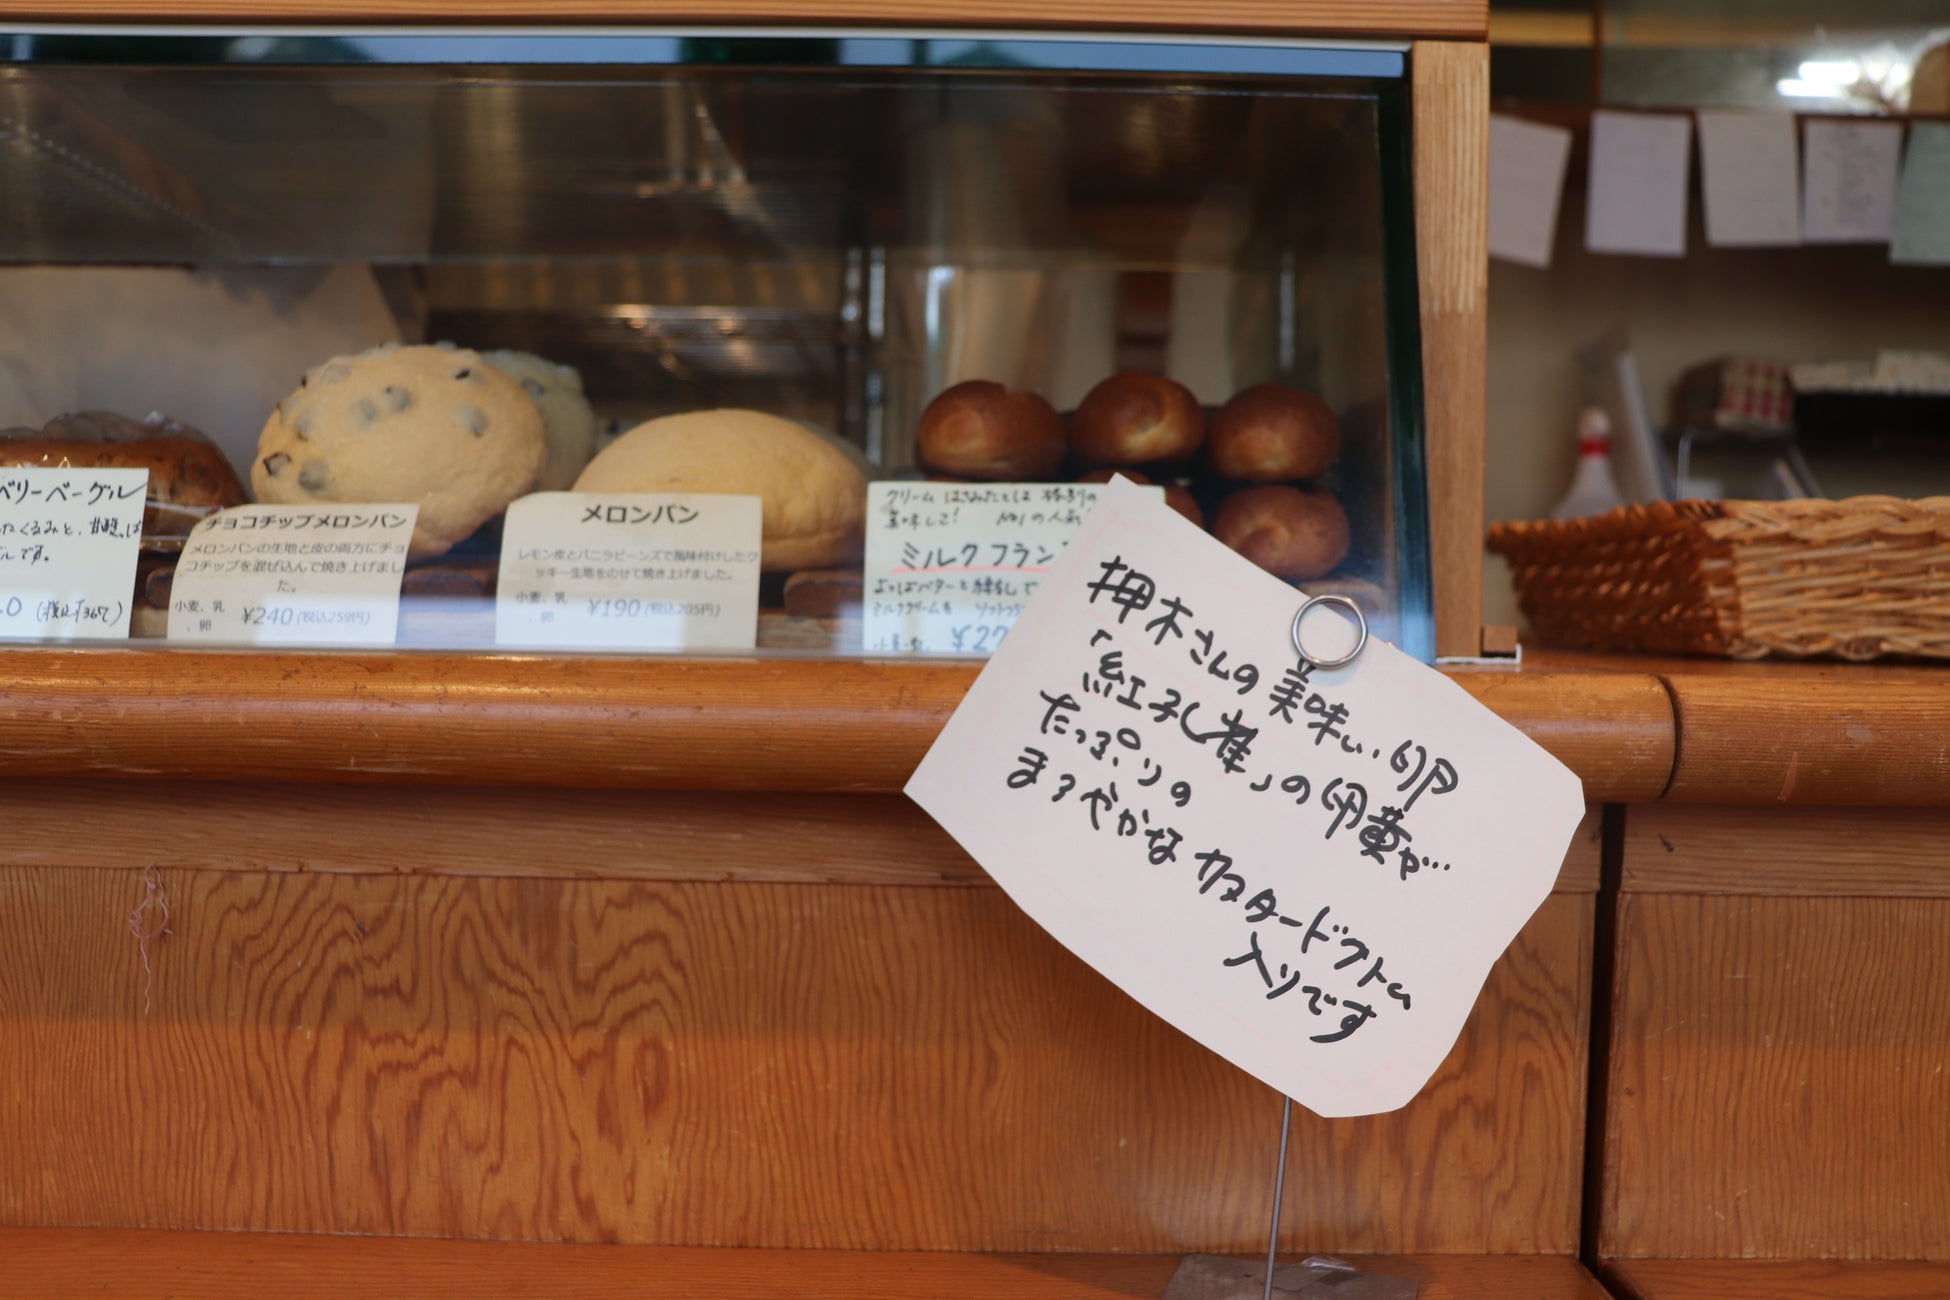 ベリーベーグル
たくるみと、甘酸っぱ
ルです。
0 (税込¥367)
チョコチップメロンパン
メロンパンの生地と皮の両方にチョ
コチップを混ぜ込んで焼き上げまし
た。
小麦、乳
、卵
¥240(税込259円)
メロンパン
レモン皮とバニラビーンズで風味付けしたク
ッキー生地をのせて焼き上げました。
小麦、乳
、卵
¥190(税込205円)
クリーム はさみたとは 格別の
美味しさ! No1の人気
ミルクフラン
よつばバターと練乳で
ミルククリームを ソフトフラ
小麦・乳 ¥27
押木さんの美味しい卵
「紅孔雀」の卵黄が…
たっぷりの
まろやかなカスタードクリーム
入りです